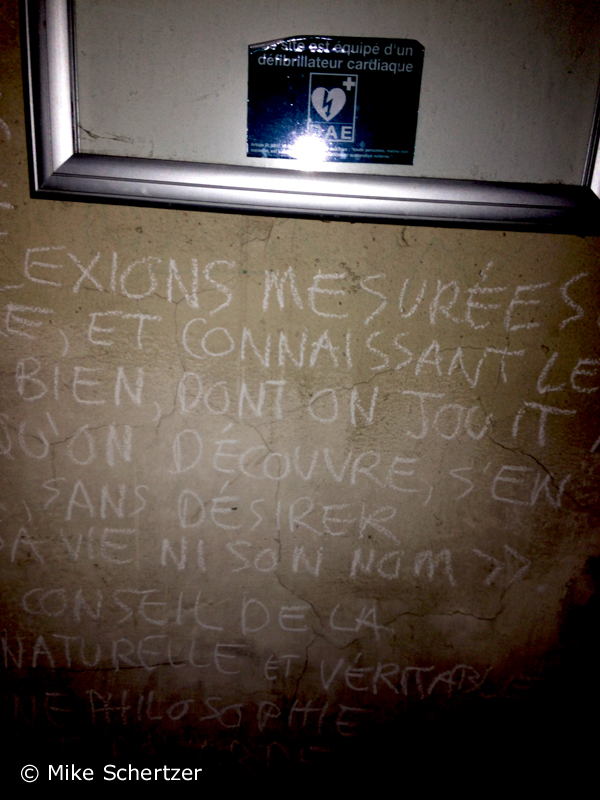 site est équipé d'un
défibrillateur cardiaque
DAE
EXIONS MESURÉES
E, ET CONNAISSANT LE
BIEN, DONT ON JOUIT
QU'ON DÉCOUVRE, S'EN
, SANS DÉSIRER
SA VIE NI SON NOM »
CONSEIL DE LA
NATURELLE ET VÉRITABLE
PHILOSOPHIE
© Mike Schertzer